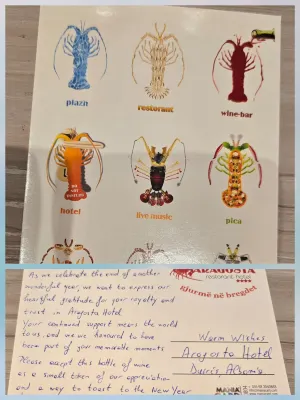 plazh
restorant
wine-bar
hotel
live music
pica
As we celebrate the end of another
wonderful year, we want to express our
heartful gratitude for your loyalty and
trust in Aragosta Hotel
Your continued support means the world
to us, and we are honoured to have
been part of your memorable moments
Please accept this bottle of wine
as a small token of our appreciation
and a way to toast to the New Year
ARAGOSTA
restorant hotel
gjurmë në bregdet
Warm Wishes
Aragosta Hotel
Durrës, Albania